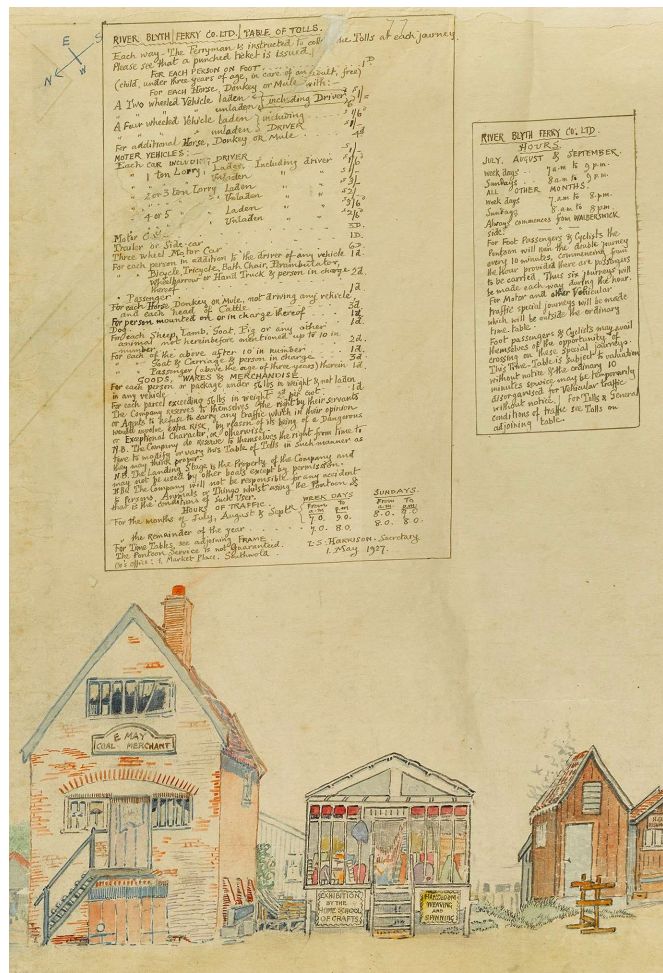 77
E
S
N
W
RIVER BLYTH FERRY CO. LTD. TABLE OF TOLLS.
Each way. The Ferryman is instructed to the Tolls at each journey.
Please see that a punched ticket is issued.
FOR EACH PERSON ON FOOT 1D
(child, under three years of age, in care of an adult, free)
FOR EACH Horse, Donkey or Mule with:
A Two wheeled Vehicle laden including Driver
" " " unladen
A Four wheeled Vehicle laden including 1/6
" " " unladen DRIVER
For additional Horse, Donkey or Mule 4d
MOTER VEHICLES:
Each CAR INCLUDING DRIVER
" 1 ton Lorry, Laden Including driver
" " Unladen
" 2 or 3 ton Lorry Laden
" " Unladen
" 4 or 5 " Laden
" " Unladen
Motor
Trailer or Side-car 1D.
Three wheel Motor Car 6D
For each person in addition to the driver of any vehicle 1d.
" Bicycle, Tricycle, Bath Chair, Perambulator,
Wheelbarrow or Hand Truck & person in charge 2d.
thereof
" Passenger 1d
For each Horse, Donkey or Mule, not driving any vehicle,
and each head of Cattle 3d.
For person mounted on or in charge thereof 1d
Dog 1d.
For each Sheep, Lamb, Goat, Pig or any other
animal not hereinbefore mentioned up to 10 in
number 2d.
For each of the above after 10 in number 1d.
" Goat & Carriage & person in charge 3d
" Passenger (above the age of three years) therein 1d.
GOODS, WARES & MERCHANDISE
For each person or package under 56lbs in weight & not laden
in any vehicle 1d
For each parcel exceeding 56lbs in weight 2d per cwt.
The Company reserves to themselves the right by their servants
or Agents to refuse to carry any traffic which in their opinion
would involve extra Risk, by reason of its being of a Dangerous
or Exceptional Character, or otherwise.
N.B. The Company do Reserve to themselves the right from time to
time to modify or vary this Table of Tolls in such manner as
they may think proper.
N.B. The Landing Stage is the Property of the Company and
may not be used by other boats except by permission.
N.B. The Company will not be responsible for any accident
to persons, Animals or Things whilst using the Pontoon &
that is the conditions of such User.
HOURS OF TRAFFIC. WEEK DAYS SUNDAYS.
From To From To
a.m. p.m. a.m. p.m.
For the months of July, August & Septr. 7.0. 9.0. 8.0. 9.0.
" the Remainder of the year 7.0. 8.0. 8.0. 8.0.
For Time Tables, see adjoining FRAME
The Pontoon Service is not Guaranteed. HARRISON. Secretary
Co's office: 1, Market Place, Southwold. 1. May 1927.
RIVER BLYTH FERRY CO. LTD.
HOURS.
JULY, AUGUST & SEPTEMBER.
Week days 7 am to 9 pm.
Sundays 8 a.m. to 9 p.m.
ALL OTHER MONTHS.
Week days 7 a.m to 8. p.m.
Sundays 8. a.m to 8 p.m.
Always commences from WALBERSWICK
side.
For Foot Passengers & Cyclists the
Pontoon will run the double journey
every 10 minutes, commencing from
the Hour provided there are passengers
to be carried. Thus six journeys will
be made each way during the hour.
For Motor and other Vehicular
traffic special journeys will be made
which will be outside the ordinary
time-table.
Foot passengers & Cyclists may avail
themselves of the opportunity of
crossing on these special journeys.
This Time-Table is Subject to valuation
without notice & the ordinary 10
minutes service may be temporarily
disorganised for Vehicular traffic
without notice. For Tolls & General
conditions of traffic see Tolls on
adjoining table.
E MAY
COAL MERCHANT
EXHIBITION
BY THE
HOME SCHOOL
OF CRAFTS
HANDLOOM
WEAVING
AND
SPINNING